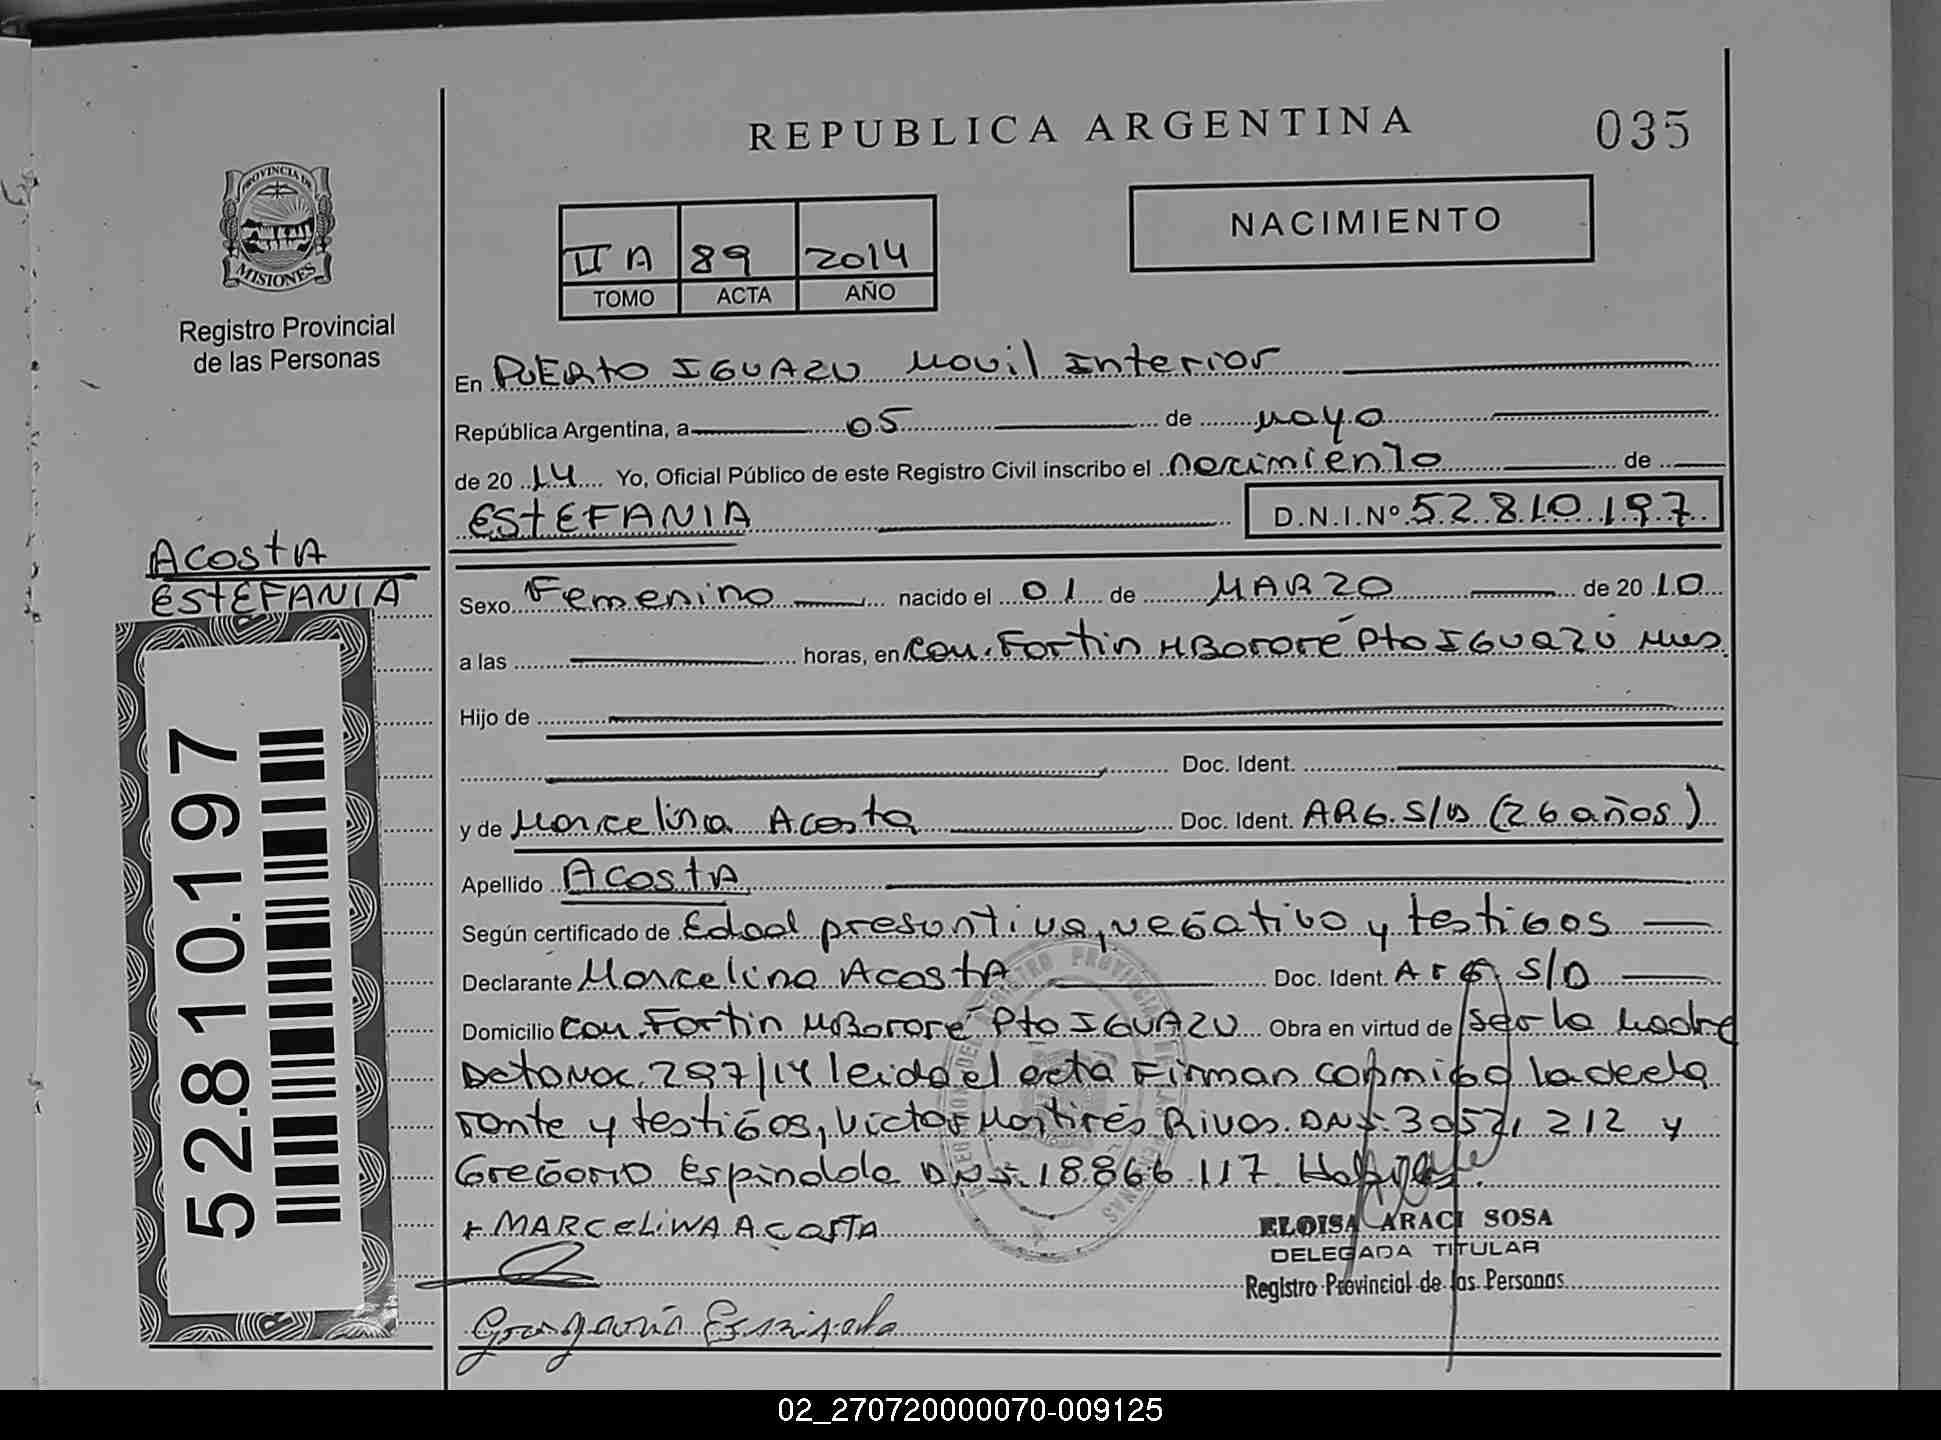 REPUBLICA ARGENTINA
035
PROVINCIA DE
MISIONES
Registro Provincial
de las Personas
NACIMIENTO
II A 89 2014
TOMO ACTA AÑO
En PUERTO IGUAZU Movil Interior
República Argentina, a 05 de mayo
de 20 14 Yo, Oficial Público de este Registro Civil inscribo el nacimiento de
ESTEFANIA D.N.I.Nº 52.810.197
ACOSTA
ESTEFANIA
Sexo Femenino nacido el 01 de MARZO de 20 10
a las horas, en Com. Fortin MBororé Pto IGUAZU Mnes
Hijo de
Doc. Ident.
y de Marcelina Acosta Doc. Ident. ARG. S/D (26 años)
Apellido ACOSTA
Según certificado de Edad presuntiva, negativo y testigos
Declarante Marcelina ACOSTA Doc. Ident. Arg. S/D
Domicilio Com. Fortin MBororé Pto IGUAZU Obra en virtud de ser la madre
297/14 leida el acta Firman conmigo la decla
rante y testigos, Victor Martires Rivas DNI. 30521212 y
Gregorio Espindola DNI. 18.866.117
+ MARCELINA ACOSTA
ELOISA ARACI SOSA
DELEGADA TITULAR
Registro Provincial de las Personas
52.810.197
02_270720000070-009125